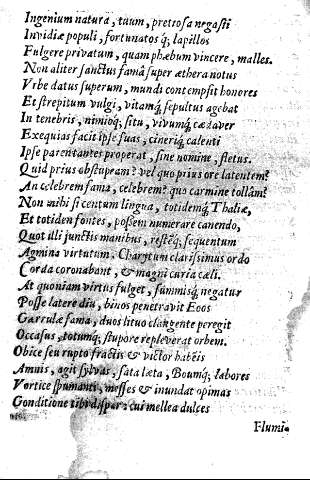 Ingenium natura, tuum, pretrosa negasti
Invidiæ populi, fortunatos q́;, lapillos
Fulgere privatum, quam phæbum vincere, malles.
Non aliter sanctus famâ super æthera notus
Vrbe datus superum, mundi contempsit honores
Et strepitum vulgi, vitamq́; sepultus agebat
In tenebris, nimioq́; situ, vivumq́; cadaver
Exequias facit ipse suas, cineriq́; calenti
Ipse parentantes properat, sine nomine, fletus.
Quid prius obstupeam? vel quo prius ore latentem?
An celebrem fama, celebrem? quo carmine tollâm?
Non mihi si centum lingua, totidemq́; Thaliæ,
Et totiden fontes, possem numerare canendo,
Quot illi junctis manibus, restêq́; sequuntur
Agmina virtutum, Charytum clarissimus ordo
Corda coronabant, & magni curia cæli.
At quoniam virtus fulget, summisq́; negatur
Posse latere diu, binos penetravit Eoos
Garrulæ fama, duos lituo clangente peregit
Occasus, totumq́; stupore repleverat orbem.
Obice seu rupto fractis & victor habenis
Amnis, agit sylvas, sata læta, Boumq́; labores
Vortice spumanti, messes & inundat opimas
Conditione tibi dispar: cui mellea dulces
Flumi-